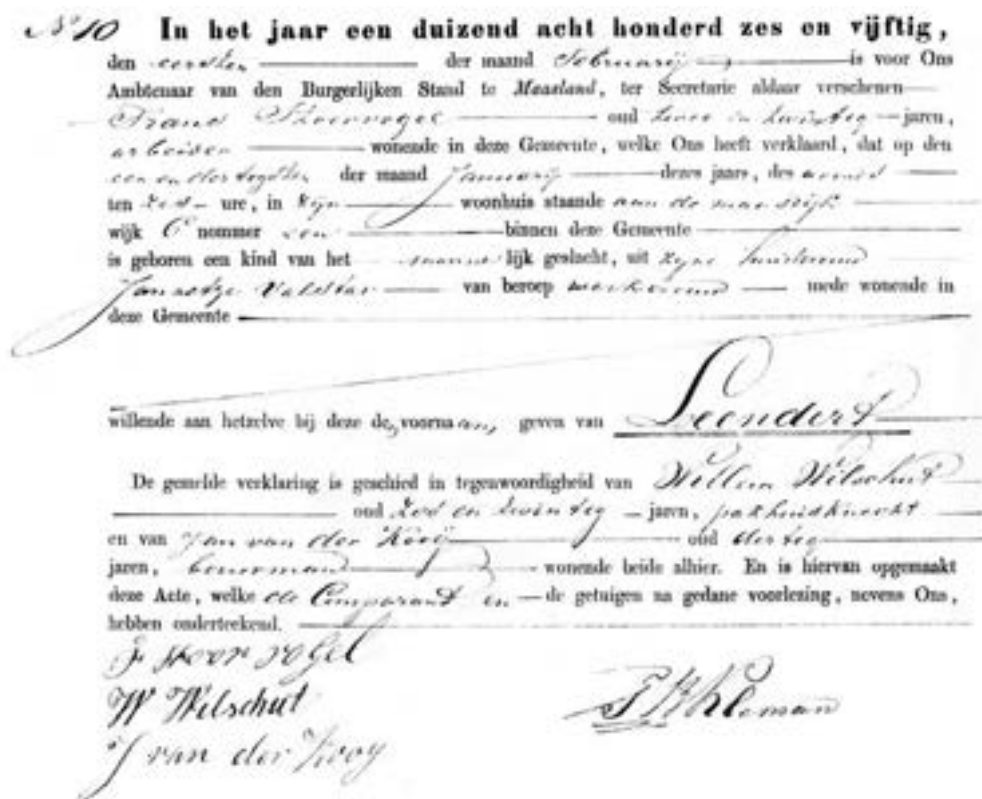 No 10 In het jaar een duizend acht honderd zes en vijftig,
den eersten der maand Februarij is voor Ons
Ambtenaar van den Burgerlijken Stand te Maasland, ter Secretarie aldaar verschenen
Frans Schoorvogel oud twee en twintig jaren,
arbeider wonende in deze Gemeente, welke Ons heeft verklaard, dat op den
een en dertigsten der maand Januarij dezes jaars, des avonds
ten zes ure, in zijn woonhuis staande aan de maasdijk
wijk C nommer een binnen deze Gemeente
is geboren een kind van het mannelijk geslacht, uit zijne huisvrouw
Jannetje Valstar van beroep mede wonende in
deze Gemeente
willende aan hetzelve bij deze de voornaam, geven van Leendert
De gemelde verklaring is geschied in tegenwoordigheid van Willem Wilschut
oud zes en twintig jaren, pakhuisknecht
en van Jan van der Kooij oud dertig
jaren, bouwman wonende beide alhier. En is hiervan opgemaakt
deze Acte, welke de Comparant en de getuigen na gedane voorlezing, nevens Ons,
hebben onderteekend.
F Schoorvogel
W Wilschut
J van der Kooy